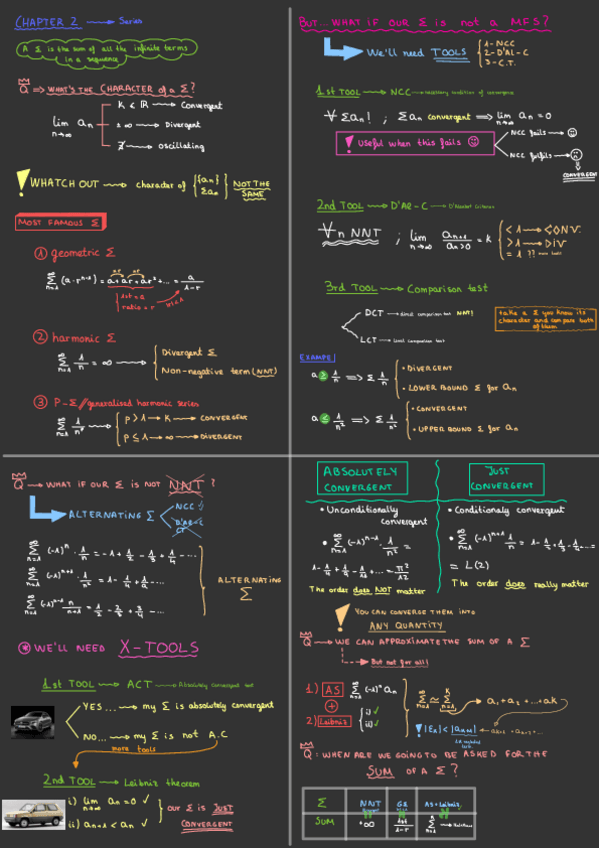 CHAPTER 2 → Series
A Σ is the sum of all the infinite terms
in a sequence
Q ⇒ WHAT'S THE CHARACTER of a Σ?
lim an
n→∞
K ∈ ℝ → Convergent
±∞ → Divergent
∄ → oscillating
! WHATCH OUT → character of { {an} Σan } NOT THE
SAME
MOST FAMOUS Σ
① geometric Σ
∞Σn=1 (a·rⁿ⁻¹) = a + ar + ar² + ... = a/(1-r)
1st = a
ratio = r
② harmonic Σ
∞Σn=1 1/n = ∞ →
Divergent Σ
Non-negative term (NNT)
③ P-Σ // generalised harmonic series
∞Σn=1 1/nᵖ →
p > 1 → K → CONVERGENT
p ≤ 1 → ∞ → DIVERGENT
BUT... WHAT IF OUR Σ is not a MFS?
We'll need TOOLS
1-NCC
2-D'AL-C
3-C.T.
1st TOOL → NCC → necessary condition of convergence
∀ Σan! ; Σan convergent ⇒ lim n→∞ an = 0
! Useful when this fails
NCC fails →
NCC fulfils →
CONVERGENT
2nd TOOL → D'AL-C → D'Alembert Criterion
∀n NNT ; lim n→∞ an+1/an>0 = k
< 1 → CONV.
> 1 → DIV
= 1 ??
3rd TOOL → Comparison test
DCT → direct comparison test NNT!
LCT → limit comparison test
take a Σ you know its
character and compare both
of them
EXAMPEl
a ≥ 1/n ⇒ Σ 1/n
• DIVERGENT
• LOWER BOUND Σ for an
a ≤ 1/n² ⇒ Σ 1/n²
• CONVERGENT
• UPPER BOUND Σ for an
Q → WHAT IF OUR Σ IS NOT NNT ?
ALTERNATING Σ
NCC
D'AL-C
CT
∞Σn=1 (-1)ⁿ · 1/n = -1 + 1/2 - 1/3 + 1/4 ...
∞Σn=1 (-1)ⁿ⁺¹ · 1/n² = 1 - 1/4 + 1/9 ...
∞Σn=1 (-1)ⁿ⁻¹ n/n+1 = 1/2 - 2/3 + 3/4 ...
ALTERNATING
Σ
* WE'LL NEED X-TOOLS
1st TOOL → ACT → Absolutely convergent test
YES... → my Σ is absolutely convergent
NO... → my Σ is not A.C
more tools
2nd TOOL → Leibniz theorem
i) lim n→∞ an = 0 ✓
ii) an+1 < an ✓
our Σ is JUST
CONVERGENT
ABSOLUTELY
CONVERGENT
• Unconditionaly
convergent
• ∞Σn=1 (-1)ⁿ⁻¹ · 1/n² =
1 - 1/4 + 1/9 - 1/16 + ... = π²/12
The order does NOT matter
JUST
CONVERGENT
• Conditionaly convergent
• ∞Σn=1 (-1)ⁿ⁺¹ 1/n = 1 - 1/2 + 1/3 - 1/4 + ...
= L(2)
The order does really matter
! YOU CAN CONVERGE THEM INTO
ANY QUANTITY
Q → WE CAN APPROXIMATE THE SUM OF A Σ
But not for all!
1) AS ∞Σn=1 (-1)ⁿ an
+
2) Leibniz
i) ✓
ii) ✓
∞Σn=1 ≃ kΣn=1 → a1 + a2 + ... + ak
! |En| < |an+1|
Q: WHEN ARE WE GOING TO BE ASKED FOR THE
SUM OF A Σ?
Σ NNT GΣ AS + Leibniz
SUM +∞ 1st/1-r